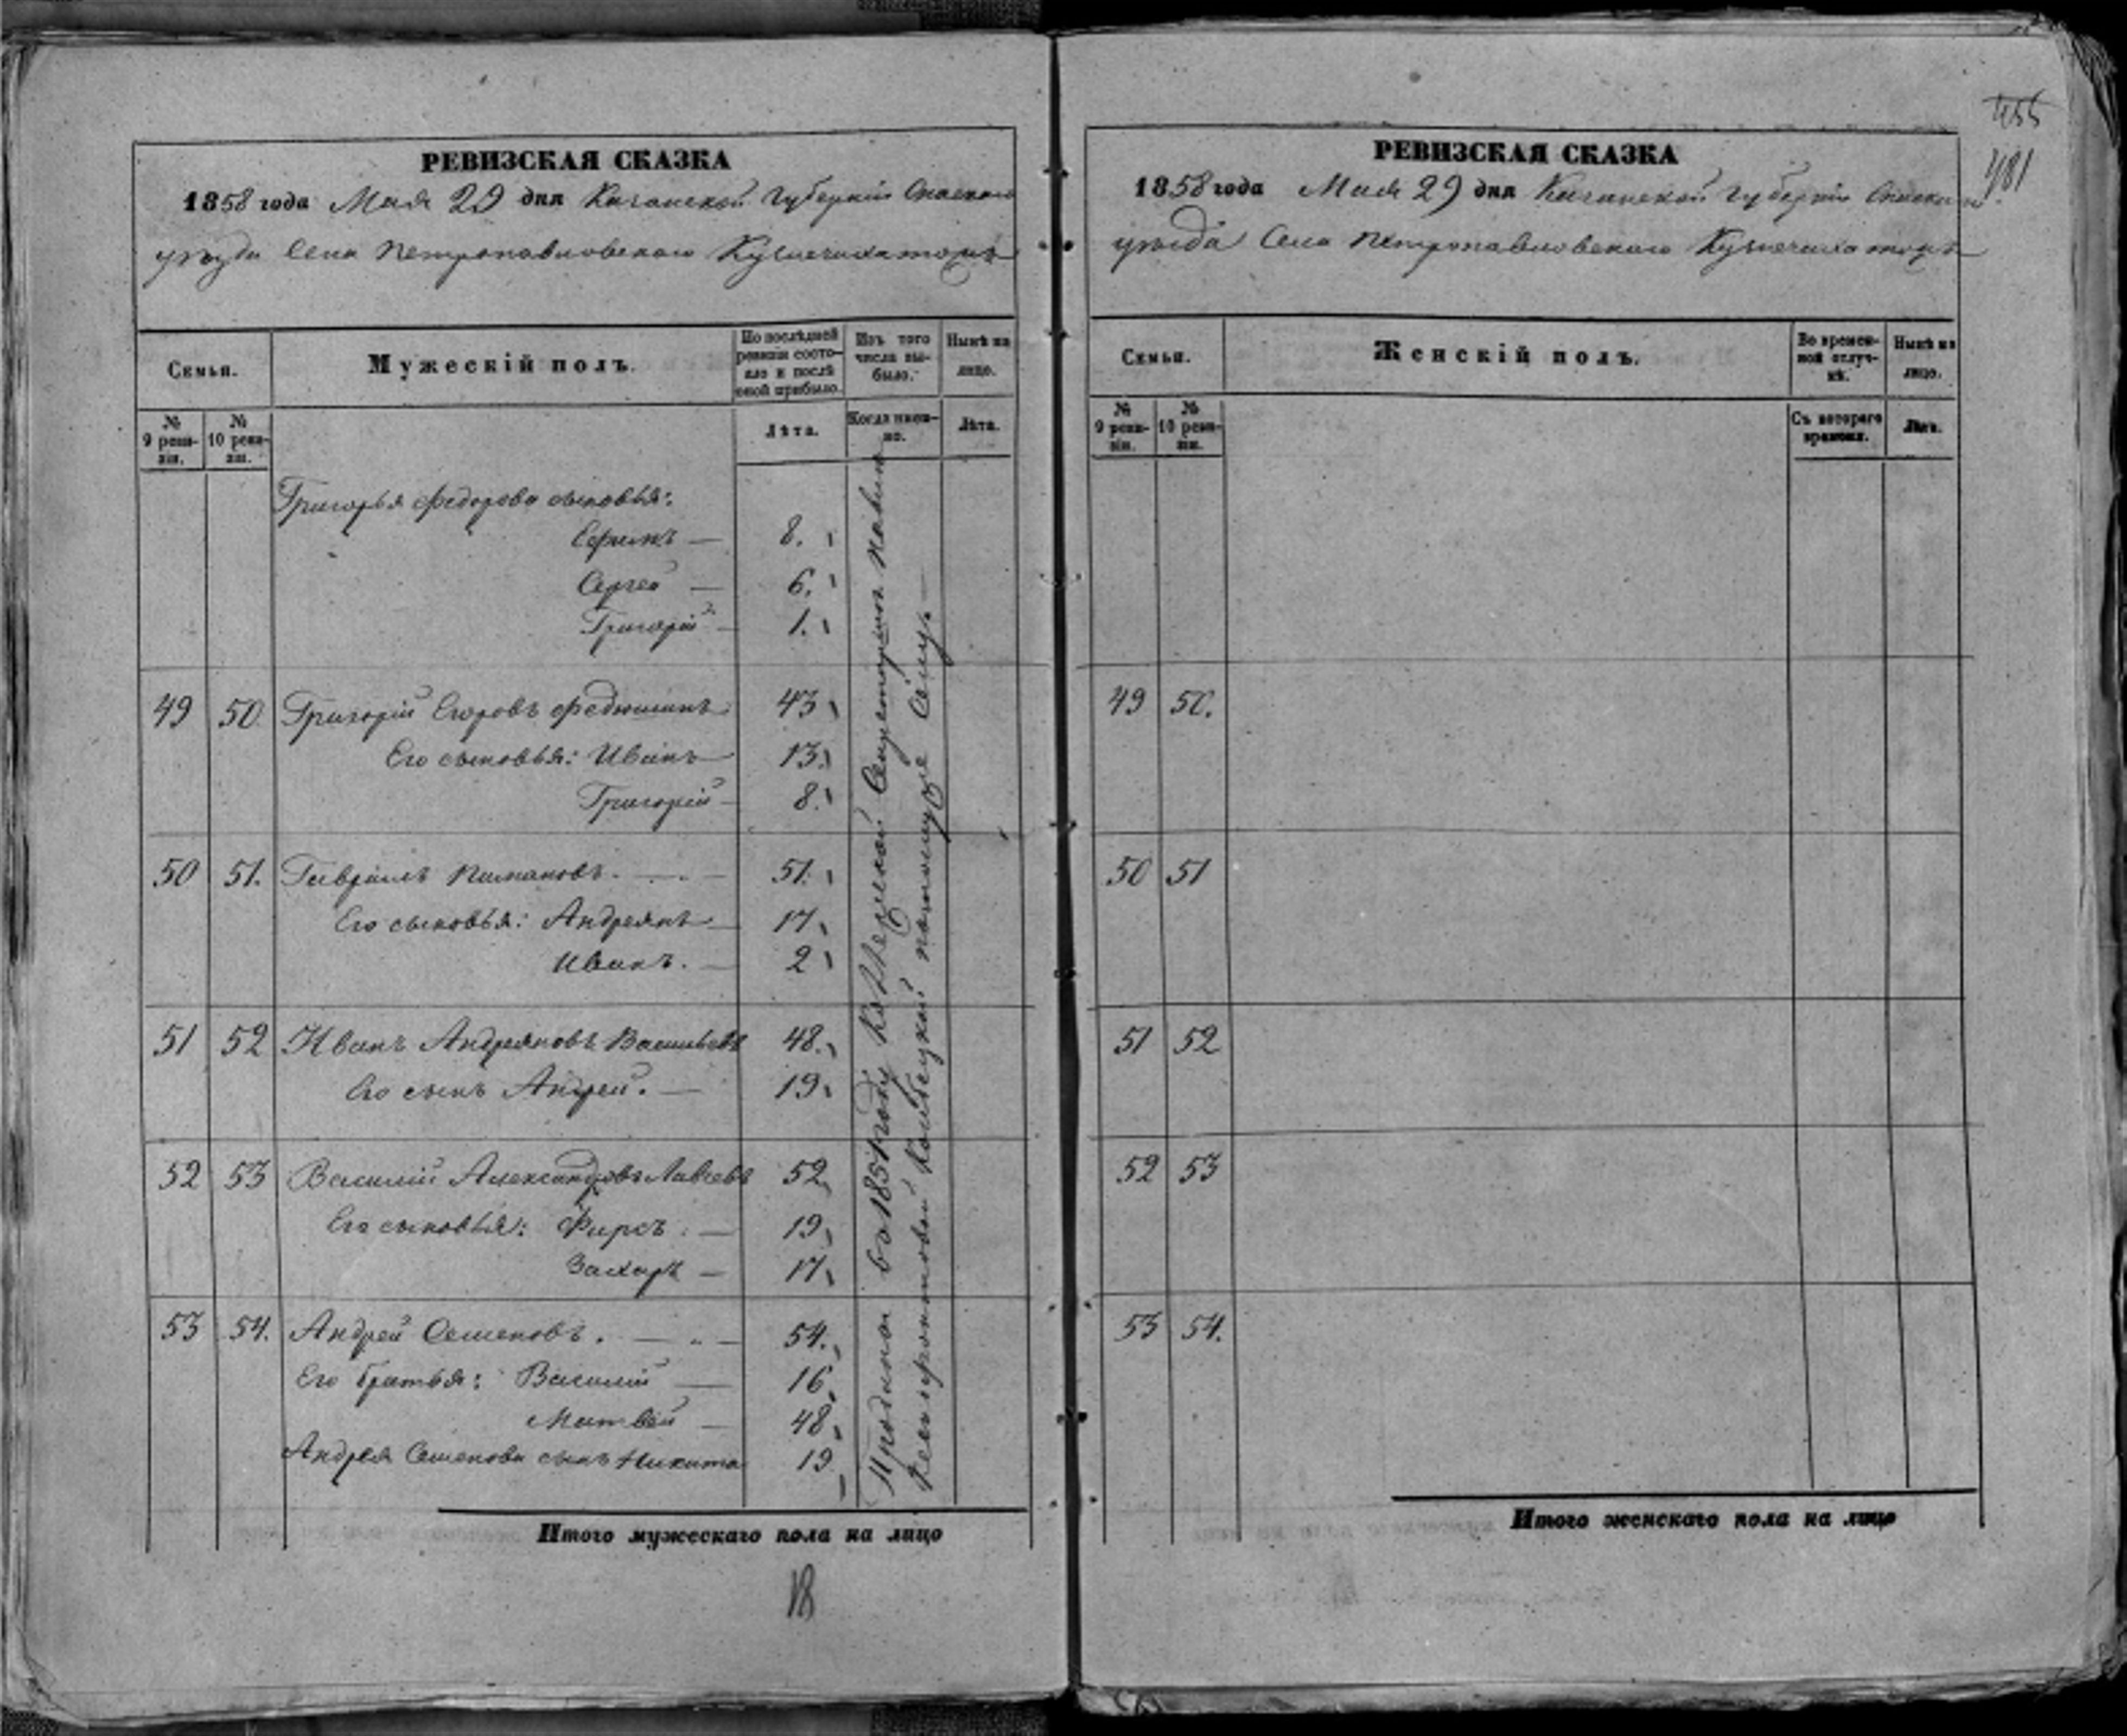 РЕВИЗСКАЯ СКАЗКА
1858 года Мая 29 дня Казанской Губерніи Спаскаго
уѣзда Села Петропавловскаго Кузнечиха тожъ
Семьи.
Мужескій полъ.
По послѣдней ревизіи состояло и послѣ оной прибыло.
Изъ того числа выбыло.
Нынѣ на лицо.
№ 9 ревизіи.
№ 10 ревизіи.
Лѣта.
Когда именно.
Лѣта.
Григорья Федорова сыновья:
Ефимъ — 8.
Сергей — 6.
Григорій — 1.
49 50. Григорій Егоровъ Федюшинъ 43
Его сыновья: Иванъ — 13.
Григорій — 8.
50 51. Гаврилъ 51.
Его сыновья: Андреянъ — 17
Иванъ. — 2
51 52 Иванъ Андреяновъ Васильевъ 48.
Его сынъ Андрей. — 19
52 53 Василій Александровъ 52
Его сыновья: Фирсъ. — 19
Захаръ — 17
53 54. Андрей Семеновъ. — 54.
Его братья: Василій — 16
Матвей — 48
Андрея Семенова сынъ Никита 19
Проданы въ 1851 году Коллежской Секретаршей
помощуре
Итого мужескаго пола на лицо
18
455
481
РЕВИЗСКАЯ СКАЗКА
1858 года Мая 29 дня Казанской Губерніи Спаскаго
уѣзда Села Петропавловскаго Кузнечиха тожъ
Семьи.
Женскій полъ.
Во временной отлучкѣ.
Нынѣ на лицо.
№ 9 ревизіи.
№ 10 ревизіи.
Съ котораго времени.
Лѣта.
49 50.
50 51
51 52
52 53
53 54.
Итого женскаго пола на лицо